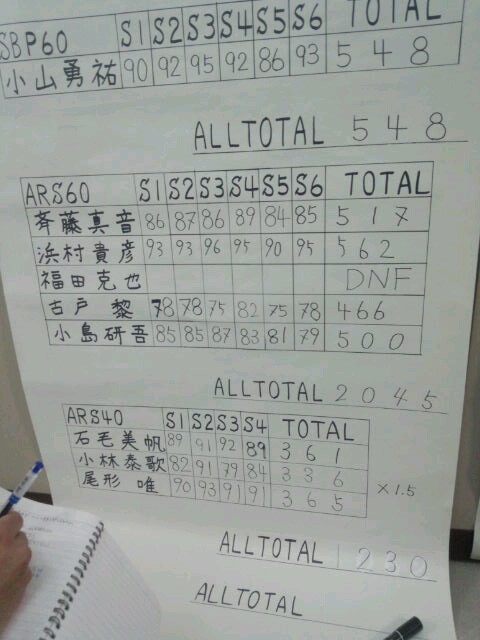 SBP60 S1 S2 S3 S4 S5 S6 TOTAL
小山勇祐 90 92 95 92 86 93 548
ALLTOTAL 548
ARS60 S1 S2 S3 S4 S5 S6 TOTAL
斉藤真音 86 87 86 89 84 85 517
浜村貴彦 93 93 96 95 90 95 562
福田克也 DNF
古戸 黎 78 78 75 82 75 78 466
小島研吾 85 85 87 83 81 79 500
ALLTOTAL 2045
ARS40 S1 S2 S3 S4 TOTAL
石毛美帆 89 91 92 89 361
小林泰歌 82 91 79 84 336 ×1.5
尾形 唯 90 93 91 91 365
ALLTOTAL 1230
ALLTOTAL